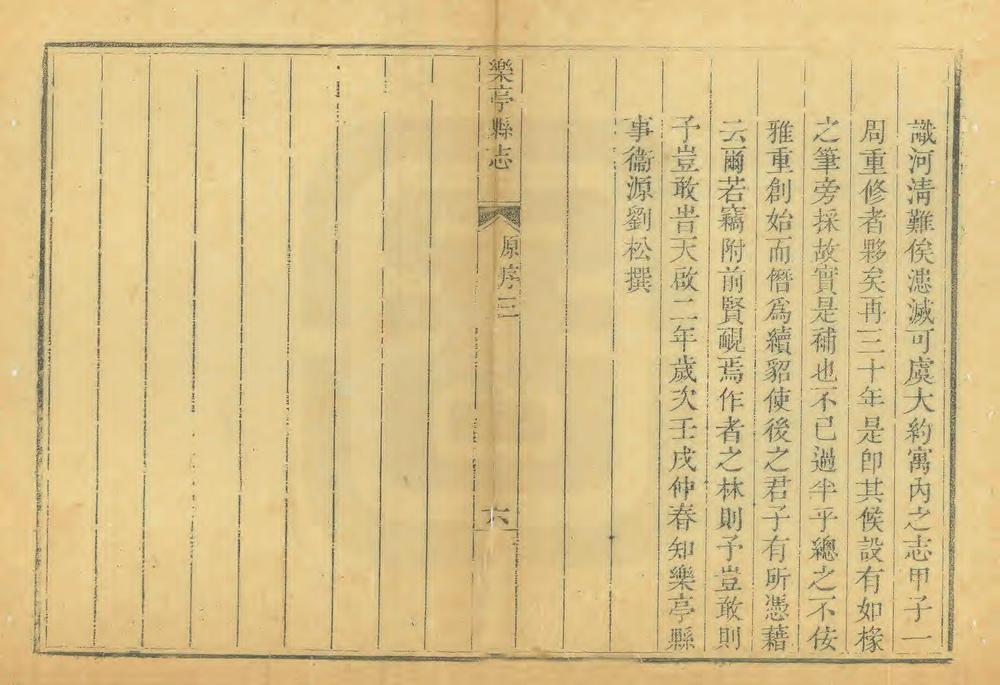 識河淸難俟漶滅可虞大約寓內之志甲子一
周重修者夥矣再三十年是卽其候設有如椽
之筆旁採故實是補也不已過半乎總之不佞
雅重創始而僭爲續貂使後之君子有所憑藉
云爾若竊附前賢覼焉作者之林則予豈敢則
予豈敢旹天啟二年歲次壬戌仲春知樂亭縣
事衞源劉松撰
樂亭縣志
原序三
六